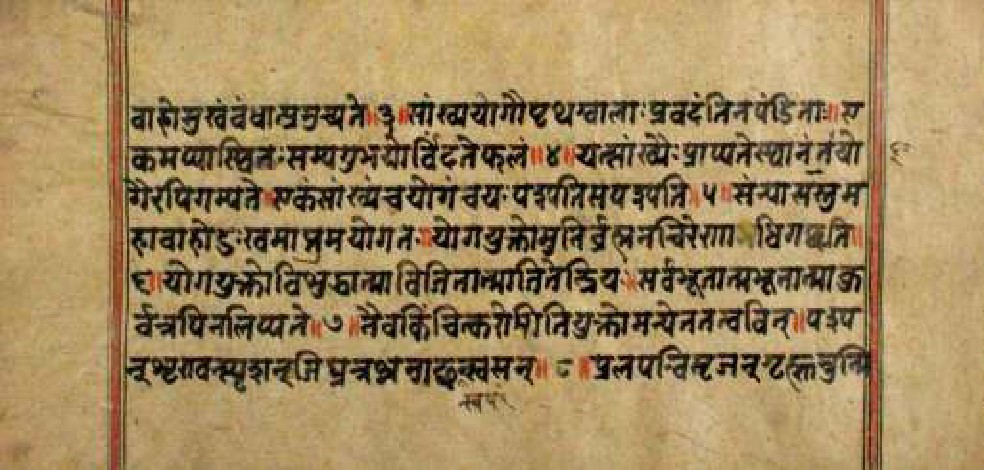 वाहोसुखंबंधात्प्रमुच्यते॥३॥सांख्ययोगौपृथग्बालाःप्रवदंतिनपंडिताः॥ए
कमप्यास्थितःसम्यगुभयोर्विंदतेफलं॥४॥यत्सांख्यैःप्राप्यतेस्थानंतंयो
गैरपिगम्यते॥एकंसांख्यंचयोगंचयःपश्यतिसपश्यति॥५॥संन्यासस्तुम
हावाहोदुःखमाप्तुमयोगतः॥योगयुक्तोमुनिर्ब्रह्मनचिरेणाधिगच्छति॥
६॥योगयुक्तोविशुद्धात्माविजितात्माजितेंद्रियः॥सर्वभूतात्मभूतात्माकु
र्वन्नपिनलिप्यते॥७॥नैवकिंचित्करोमीतियुक्तोमन्येततत्त्ववित्॥पश्य
न्शृण्वन्स्पृशन्जिघ्रन्नश्नन्गछन्स्वसन्॥८॥प्रलपन्विसृजन्गृह्णन्नुन्मि